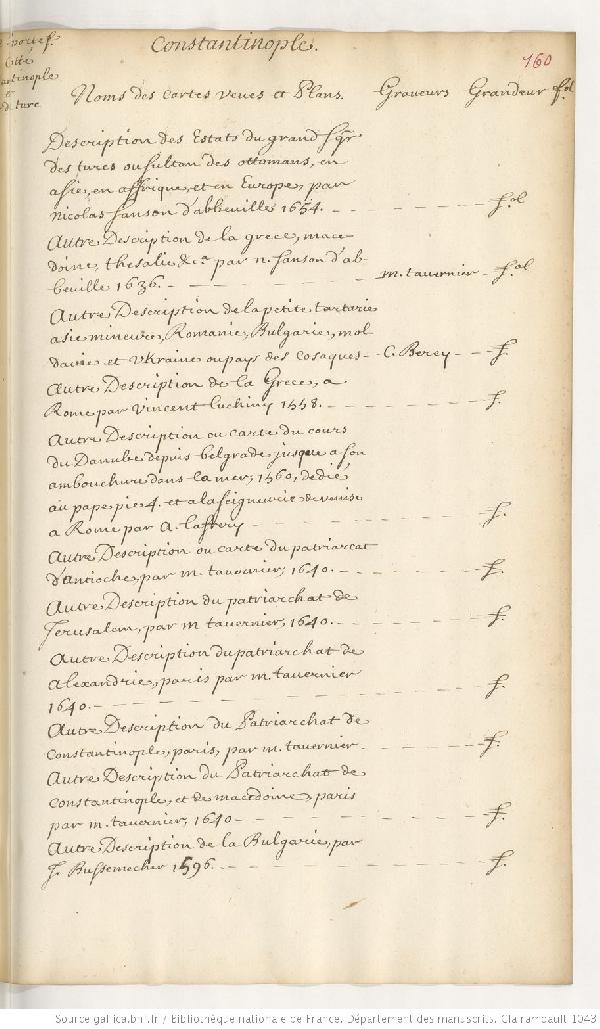 Constantinople.
160
Noms des cartes veues et Plans. Graveurs Grandeur fol
Description des Estats du grand Sgr
des turcs ou sultan des ottomans, en
asie, en affrique, et en Europe, par
Nicolas Sanson d'abbeville 1654. f.ol
Autre Description de la grece, mace-
doine, thesalie &ca par n. Sanson d'ab-
beville 1636. m. tavernier f.ol
Autre Description de la petite tartarie
asie mineure, Romanie, Bulgarie, mol
davie et Vkraine ou pays des Cosaques C. Berey f.
Autre Description de la Grece, a
Rome par Vincent Luchiny 1558. f.
Autre Description ou carte du cours
du Danube depuis belgrade jusque a son
ambouchure dans la mer, 1560, dedié
au pape pie 4. et a la seigneurie de venise
a Rome par A. Laffrery f.
Autre Description ou carte du patriarcat
d'antioche, par m. tavernier, 1640. f.
Autre Description du patriarchat de
Jerusalem, par m tavernier, 1640. f.
Autre Description du patriarchat de
Alexandrie, paris par m. tavernier
1640. f.
Autre Description du Patriarchat de
Constantinople, paris, par m. tavernier. f.
Autre Description du Patriarchat de
Constantinople, et de macedoine, paris
par m. tavernier, 1640 f.
Autre Description de la Bulgarie, par
J. Bussemecher 1596. f.
Source gallica.bnf.fr / Bibliothèque nationale de France. Département des manuscrits. Clairambault 1043